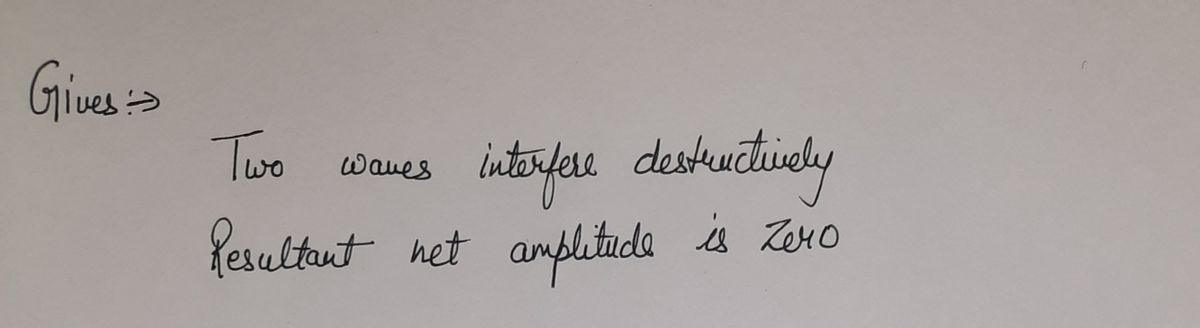 Gives :⇒
Two waves interfere destructively
Resultant net amplitude is Zero